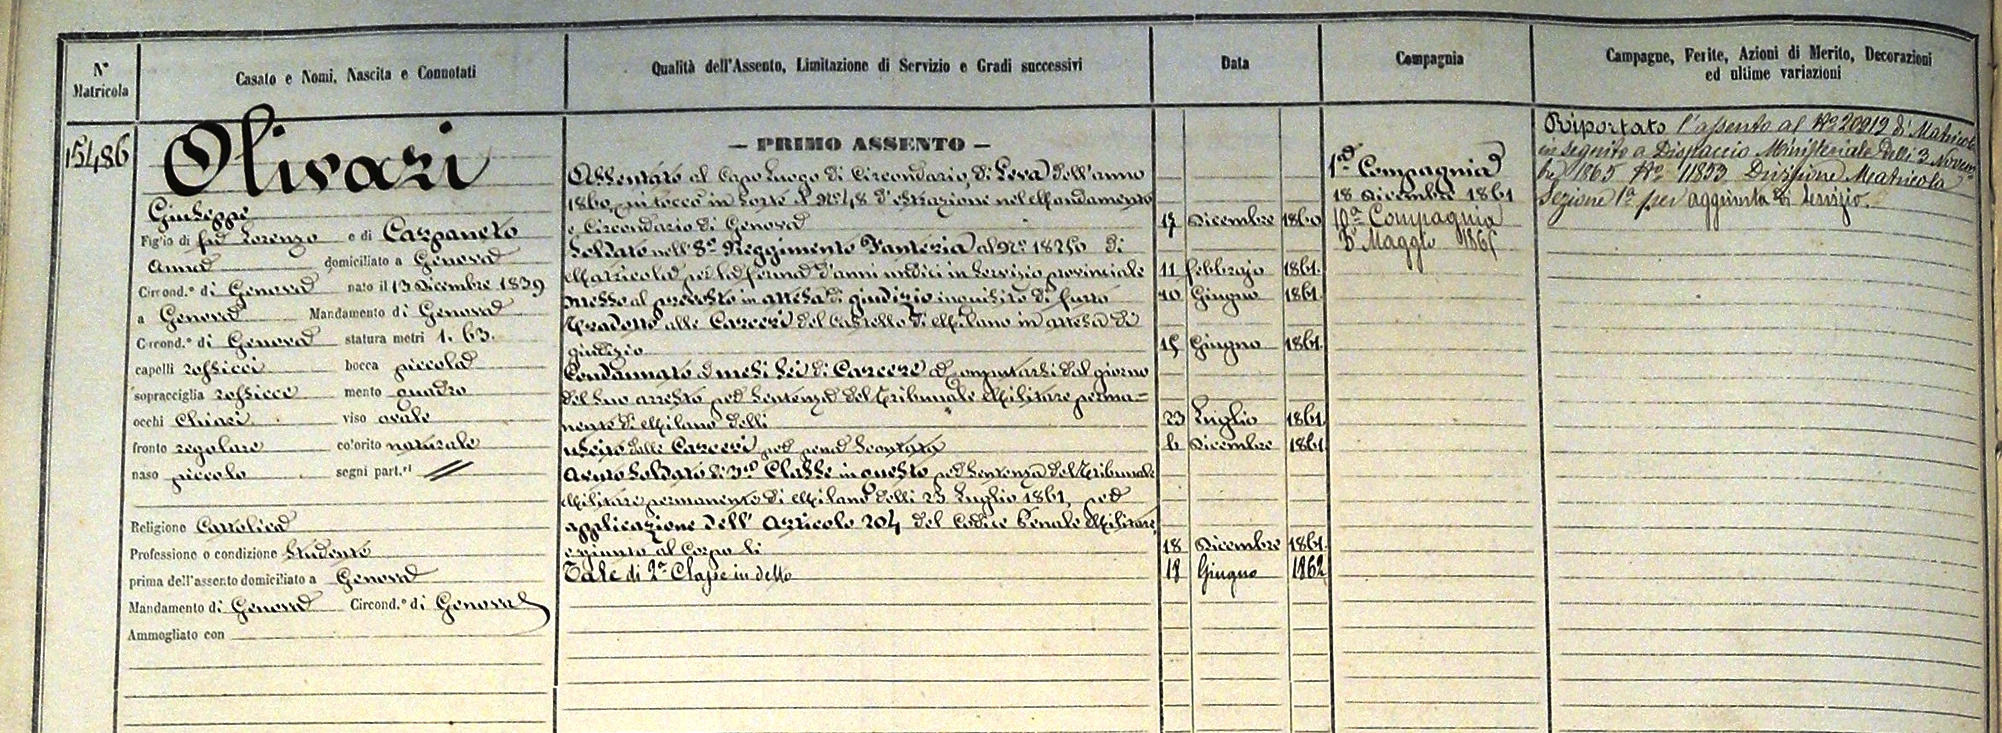 N°
Matricola
Casato e Nomi, Nascita e Connotati
Qualità dell'Assento, Limitazione di Servizio e Gradi successivi
Data
Compagnia
Campagne, Ferite, Azioni di Merito, Decorazioni
ed ultime variazioni
15486
Olivari
Giuseppe
Figlio di fu Lorenzo e di Carpaneto
Anna domiciliato a Genova
Circond.° di Genova nato il 13 Dicembre 1839
a Genova Mandamento di Genova
Circond.° di Genova statura metri 1. 63.
capelli rossicci bocca piccola
sopracciglia rossicce mento quadro
occhi chiari viso ovale
fronte regolare colorito naturale
naso piccolo segni part.ri //
Religione Cattolica
Professione o condizione Studente
prima dell'assento domiciliato a Genova
Mandamento di Genova Circond.° di Genova
Ammogliato con
— PRIMO ASSENTO —
Assentato al Capo Luogo di Circondario, di Leva dell'anno
1860, in tocco in sorte il N° 48 d'estrazione nel Mandamento
e Circondario di Genova 17 Dicembre 1860
Soldato nell'8° Reggimento Fanteria al N° 18250 di
Matricola per la ferma d'anni undici in servizio provinciale 11 febbrajo 1861.
Messo al arresto in attesa di giudizio inquisito di furto 10 Giugno 1861.
Tradotto alle Carceri del Castello di Milano in attesa di
giudizio 15 Giugno 1861.
Condannato a mesi sei di Carcere a computarsi dal giorno
del suo arresto per sentenza del Tribunale Militare perma=
nente di Milano delli 23 Luglio 1861.
uscito dalle Carceri per pena scontata 6 Dicembre 1861
Soldato di 3a Classe in questo per sentenza del Tribunale
Militare permanente di Milano delli 23 Luglio 1861, per
applicazione dell' Articolo 204 del Codice Penale Militare,
e giunto al Corpo li 18 Dicembre 1861.
Tale di 2a Classe in detto 18 Giugno 1862
1a Compagnia
18 Dicembre 1861
10a Compagnia
Maggio
Riportato l'assento al N° 20919 di Matricola
in seguito a Dispaccio Ministeriale delli 3 Novem-
bre 1865 N° 11853 Divisione Matricola
Sezione 1a per aggiunta di servizio.